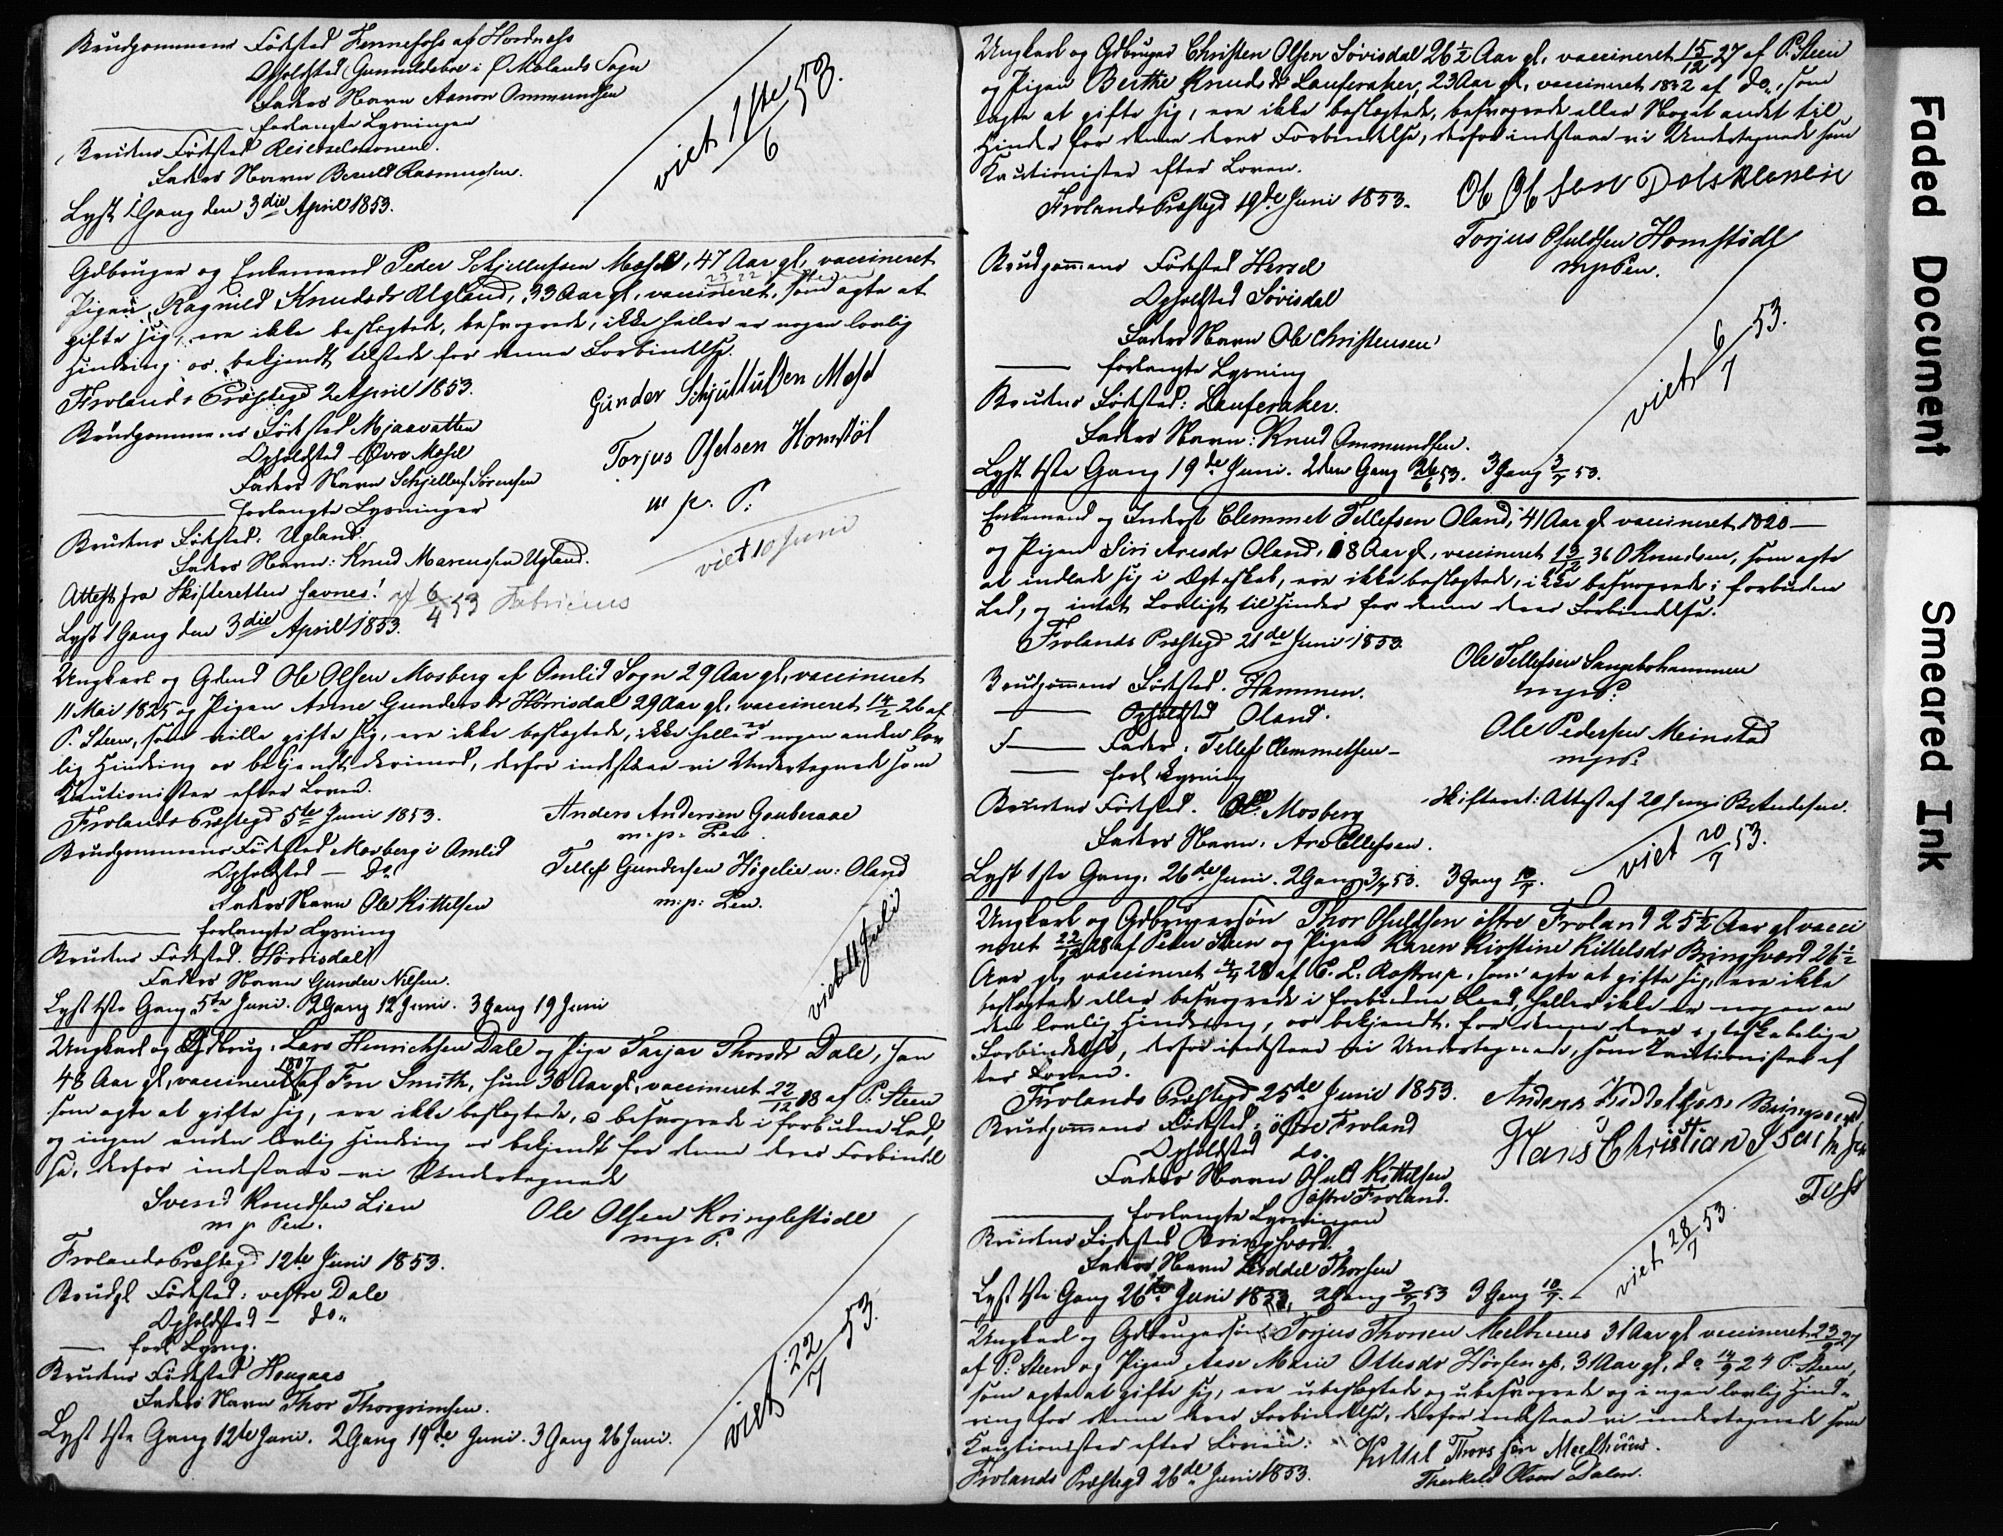 Brudgommens Fødested Fennefoss af Hordnæss
Opholdsted Gunnildsboe i Ø Molands Sogn
Faders Navn Aanon Ommundsen
forlangte Lysningen
Brudens Fødested Reierselmoene.
Faders Navn Berulf Rasmussen.
Lyst 1 Gang den 3die April 1853.
viet 1ste/6 53.
Gdbruger og Enkemand Peder Schjellufsen Mæsel, 47 Aar gl, vaccineret
Pigen Ragnild Knudsdr Ugland, 33 Aar gl, vaccineret, som agte at
gifte sig, ere ikke beslægtede, besvogrede, ikke heller er nogen lovlig
Hindring os bekjendt tilstede for denne Forbindelse.
Frolands Præstegd 2 April 1853.
Gunder Schjullufsen Mæsel
Brudgommens Fødested Mjaavatten
Opholdsted Øvre Mæsel
Torjus Osulsen Homstøl
Faders Navn Schjelluf Sørensen
m p. P.
forlangte Lysninger
Brudens Fødested: Ugland.
viet 10 Juni
Faders Navn: Knud Marcussen Ugland.
Attest fra Skifteretten havnes! af 6/4 53 Fabricius
Lyst 1 Gang den 3die April 1853.
Ungkarl og Gdmd Ole Olsen Mosberg af Omlid Sogn 29 Aar gl, vaccineret
11 Mai 1825 og Pigen Anne Gundersdr Hørrisdal 29 Aar gl, vaccineret 14/2 26 af
P. Steen, som ville gifte sig, ere ikke beslægtede, ikke heller er nogen anden lov
lig Hindring os bekjendt derimod, derfor indestaae vi Undertegnede som
Kautionister efter Loven.
Frolands Præstegd 5te Juni 1853.
Anders Andersen Gauberaae
m: p: Pen.
Brudgommens Fødested Mosberg i Omlid
Opholdsted — Do
Tellef Gundersen Høgelie u: Oland
m: p: Pen.
Faders Navn Ole Kittelsen
forlangte Lysning
Brudens Fødested. Hørrisdal
Faders Navn Gunder Nilsen.
viet 11 Juli
Lyst 1ste Gang 5te Juni. 2 Gang 12 Juni. 3 Gang 19 Juni
Ungkarl og Gdbrug. Lars Henrichsen Dale og Pige Tarjer Thorsdr Dale, han
48 Aar gl, vaccineret 1807 af Fon Smith, hun 36 Aar gl, vaccineret 22/12 18 af P. Steen
som agte at gifte sig, ere ikke beslægtede, o besvogrede i forbudne Led,
og ingen anden lovlig Hindring er bekjendt for denne deres Forbindel
se, derfor indestaae vi Undertegnede
Svend Knudsen Lien
m p Pen.
Ole Olsen Kringlestødl
m p. P.
Frolands Præstegd 12te Juni 1853.
Brudgl Fødested: vestre Dale
Opholdsted — do.
forl Lysng.
Brudens Fødested Hougaas
Faders Navn Thor Thorgrimsen.
viet 22/7 53.
Lyst 1ste Gang 12te Juni. 2 Gang 19de Juni. 3 Gang 26 Juni.
Ungkarl og Gdbruger Christen Olsen Søvisdal 26½ Aar gl, vaccineret 15/12 27 af P. Steen
og Pigen Berthe Knudsdr Lauferaker, 23 Aar gl, vaccineret 1832 af do., som
agte at gifte sig, ere ikke beslægtede, besvogrede eller Noget andet til
Hinder for denne deres Forbindelse, derfor indestaae vi Undertegnede som
Kautionister efter Loven.
Frolands Præstegd 19de Juni 1853.
Ole Olsen Dølskleven
Torjus Osuldsen Homstødl
m p Pen.
Brudgommens Fødested Herrel
Opholdsted Søvisdal
Faders Navn Ole Christensen
forlangte Lysning
viet 6/7 53.
Brudens Fødested: Lauferaker.
Faders Navn: Knud Ommundsen.
Lyst 1ste Gang 19de Juni. 2den Gang 26/6 53. 3 Gang 3/7 53.
Enkemand og Inderst Clemmet Tellefsen Oland, 41 Aar gl vaccineret 1820 —
og Pigen Siri Aresdr Oland, 18 Aar gl, vaccineret 36 O Knudsen, som agte
at indlade sig i Ægteskab, ere ikke beslægtede, ikke besvogrede i forbudne
Led, og intet Lovligt til Hinder for denne deres Forbindelse.
Frolands Præstegd 21de Juni 1853.
Ole Tellefsen Langebohammen
m p P.
Brudgommens Fødested. Hammen.
Opholdsted Oland.
Ole Pedersen Meinstad
m p P.
Fader. Tellef Clemmetsen —
forl Lysning
Skifteret: Attest af 20 Juni
Brudens Fødested. Mosberg
Faders Navn. Are Ellefsen.
viet 20/7 53.
Lyst 1ste Gang. 26de Juni. 2 Gang 3/7 53. 3 Gang 10/7.
Ungkarl og Gdbrugersøn Thor Osuldsen østre Froland 25½ Aar gl vacci
neret 22/12 28 af Peter Steen og Pigen Karen Kirstine Kittelsdr Bringsværd 26½
Aar gl, vaccineret 4/4 28 af C. L. Rostrup, som agte at gifte sig, ere ikke
beslægtede eller besvogrede i forbudne Leed, heller ikke er nogen an
den lovlig Hindring, os bekjendt, for denne deres ægteskabelige
Forbindelse, derfor indestaae vi Undertegnede, som Kautionister ef
ter Loven.
Frolands Præstegd 25de Juni 1853.
Anders Kiddelsen Bringsværd
Brudgommens Fødested: østre Froland
Opholdsted do.
Hans Christian Isachsen
Faders Navn Osuld Kittelsen
østre Froland.
forlangte Lysningen
Brudens Fødested Bringsværd.
Faders Navn Kiddel Thorsen
viet 28/7 53.
Lyst 1ste Gang 26de Juni 1853. 2 Gang 3/7 53 3 Gang 10/7.
Ungkarl og Gdbrugersøn Torjus Thorsen Mælhuus 31 Aar gl vaccineret 27
af P. Steen og Pigen Aase Marie Ottesdr 31 Aar gl, do 14/9 24 P. Steen,
som agte at gifte sig, ere ubeslægtede og ubesvogrede og ingen lovlig Hind-
ring for denne deres Forbindelse, derfor indestaae vi undertegnede som
Kautionister efter Loven:
Kittel Thorssøn Mælhuus.
Frolands Præstegd 26de Juni 1853.
Therkeld Olsen Dalen.
Faded Document
Smeared Ink